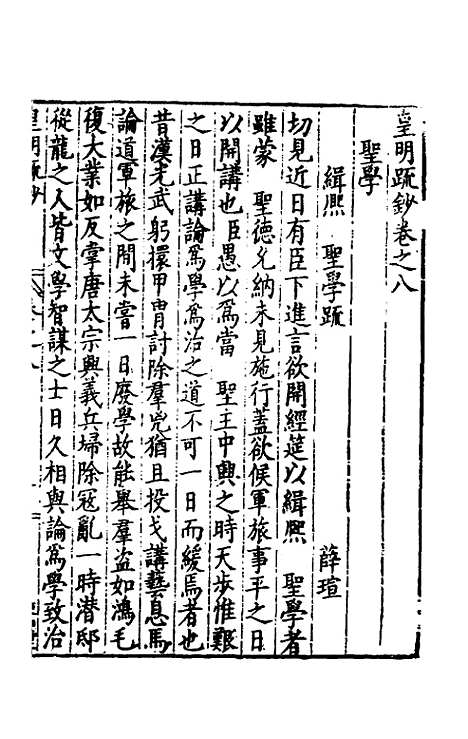 皇明䟽鈔卷之八
聖學
緝熈　聖學䟽
薛瑄
切見近日有臣下進言欲開經筵以緝熈　聖學者
雖蒙　聖德允納未見施行蓋欲候軍旅事平之日
以開講也臣愚以爲當　聖主中興之時天步惟艱
之日正講論爲學爲治之道不可一日而緩焉者也
昔漢光武躬擐甲胄討除羣兇猶且投戈講藝息馬
論道軍旅之間未嘗一日廢學故能舉羣盗如鴻毛
復大業如反掌唐太宗興義兵埽除冦亂一時潜邸
從龍之人皆文學智謀之士日久相與論爲學致治
皇明䟽鈔